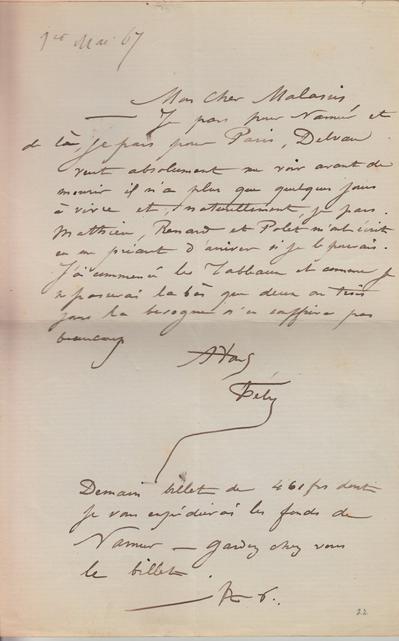 1er Mai 67
Mon cher Malassis,
— Je pars pour Namur et
de là, je pars pour Paris, Delvau
veut absolument me voir avant de
mourir il n'a plus que quelques jours
à vivre et, naturellement, je pars
Matthieu, Renard et Polet m'ont écrit
en me priant d'arriver si je le pouvais.
J'ai commencé les Tableaux et comme je
ne passerai là bas que deux ou trois
jours la besogne n'en souffrira pas
beaucoup
A Vous
Fély
Demain billet de 461 frs dont
je vous expédierai les fonds de
Namur — gardez chez vous
le billet.
22